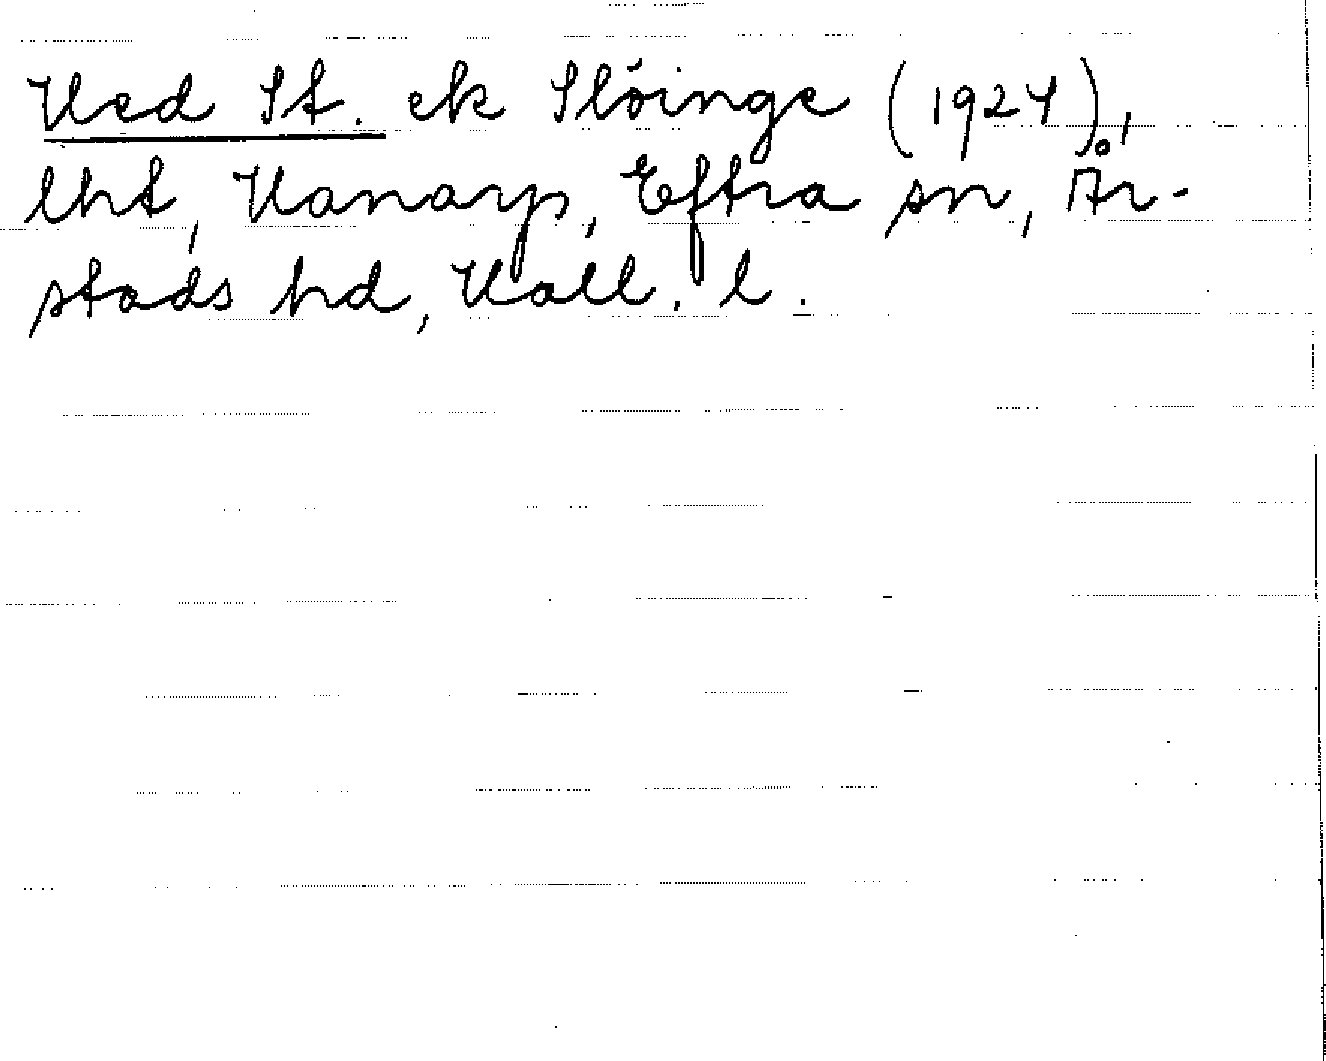 Hed St. ek Slöinge (1924),
lht, Hanarp, Eftra sn, År-
stads hd, Hall. l.